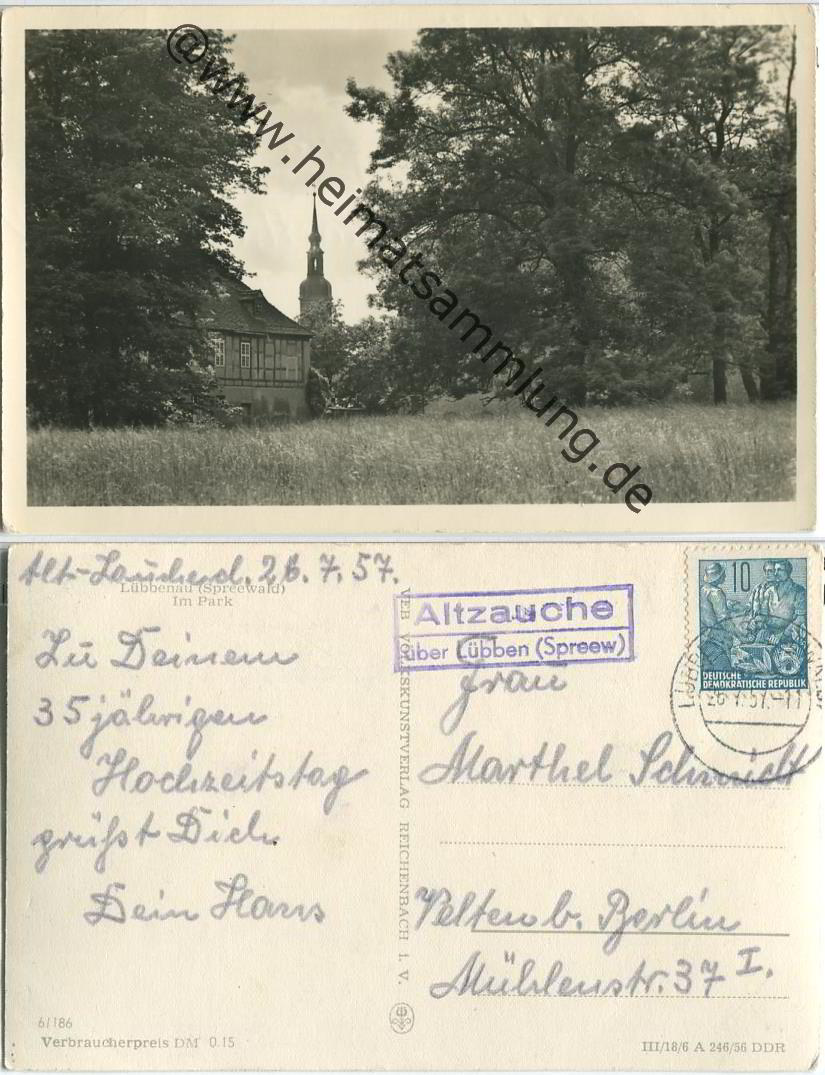 @www.heimatsammlung.de
Alt-Zauche d. 26. 7. 57.
Lübbenau (Spreewald)
Im Park
Zu Deinem
35 jährigen
Hochzeitstag
grüßt Dich
Dein Hans
6/186
Verbraucherpreis DM 0.15
VEB VOLKSKUNSTVERLAG REICHENBACH i. V.
Altzauche
über Lübben (Spreew)
10
DEUTSCHE
DEMOKRATISCHE REPUBLIK
LÜBBEN
26.7.57.-11
Frau
Marthel Schmidt
Velten b. Berlin
Mühlenstr. 37 I.
III/18/6 A 246/56 DDR